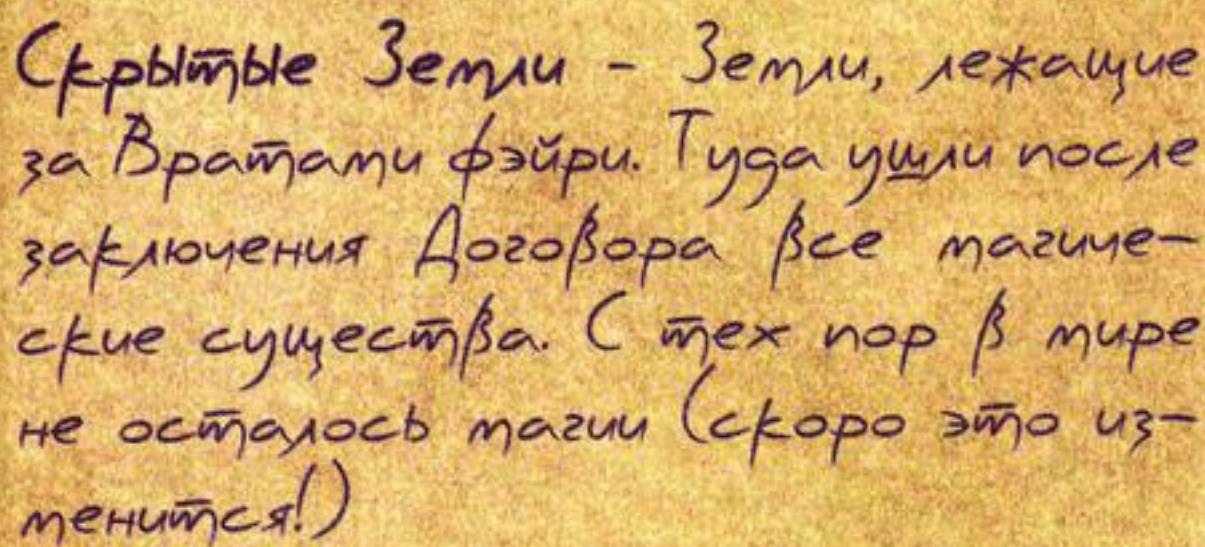 Скрытые Земли - Земли, лежащие
за Вратами фэйри. Туда ушли после
заключения Договора все магиче-
ские существа. С тех пор в мире
не осталось магии (скоро это из-
менится!)